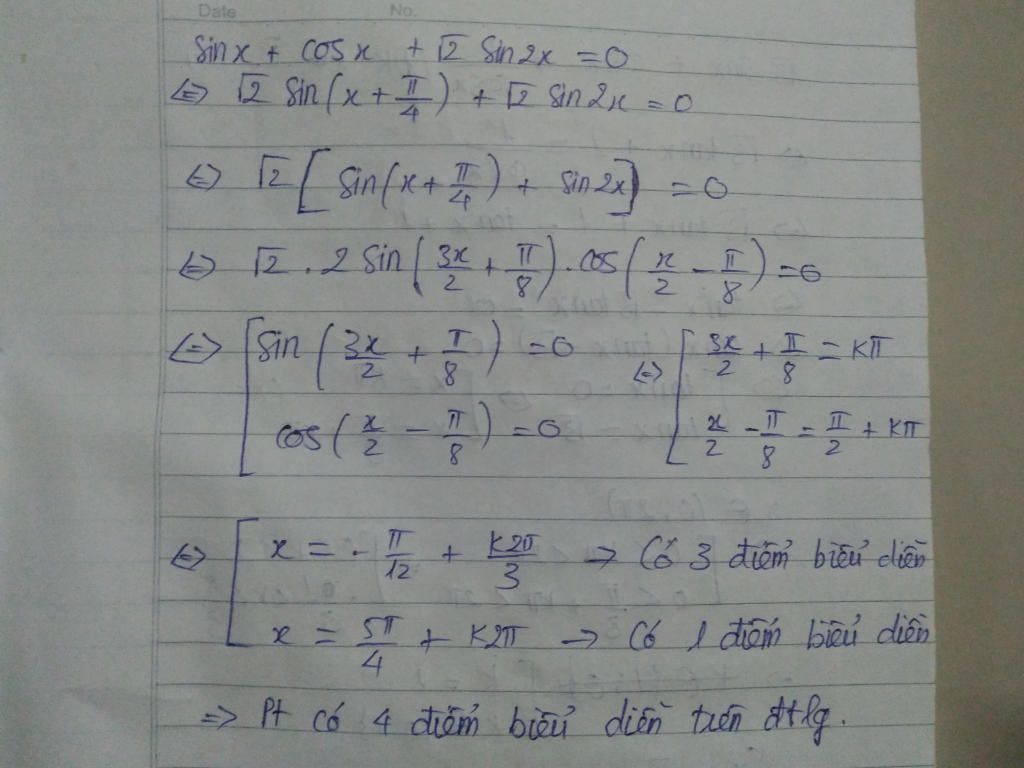 Date No.
sinx + cosx + √2 sin2x = 0
⇔ √2 sin(x + π/4) + √2 sin2x = 0
⇔ √2 [ sin(x + π/4) + sin2x ] = 0
⇔ √2 . 2 sin(3x/2 + π/8) . cos(x/2 - π/8) = 0
⇔ [ sin(3x/2 + π/8) = 0 ⇔ [ 3x/2 + π/8 = kπ
cos(x/2 - π/8) = 0 x/2 - π/8 = π/2 + kπ
⇔ [ x = - π/12 + k2π/3 → Có 3 điểm biểu diễn
x = 5π/4 + k2π → Có 1 điểm biểu diễn
⇒ Pt có 4 điểm biểu diễn trên đtlg.